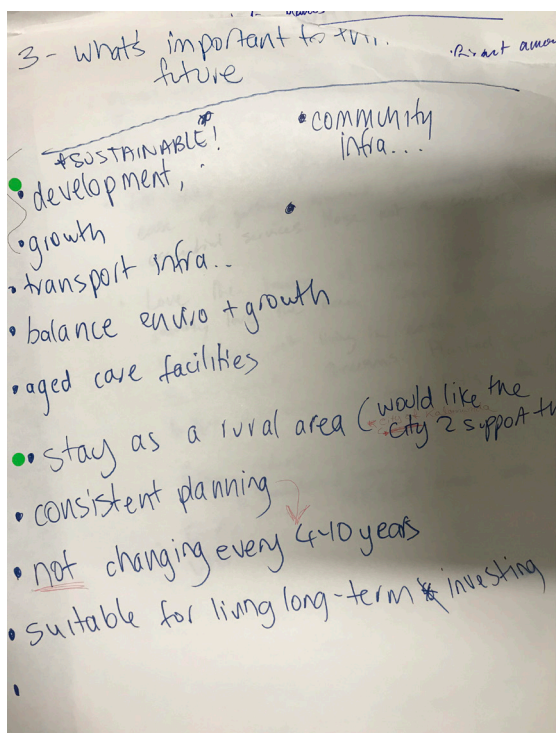 3 - what's important to
future
*SUSTAINABLE!
• development,
• growth
• transport infra..
• balance enviro + growth
• aged care facilities
• stay as a rural area (would like the
city 2 support th
• consistent planning
• not changing every 4-10 years
• suitable for living long-term & investing
• community
infra...